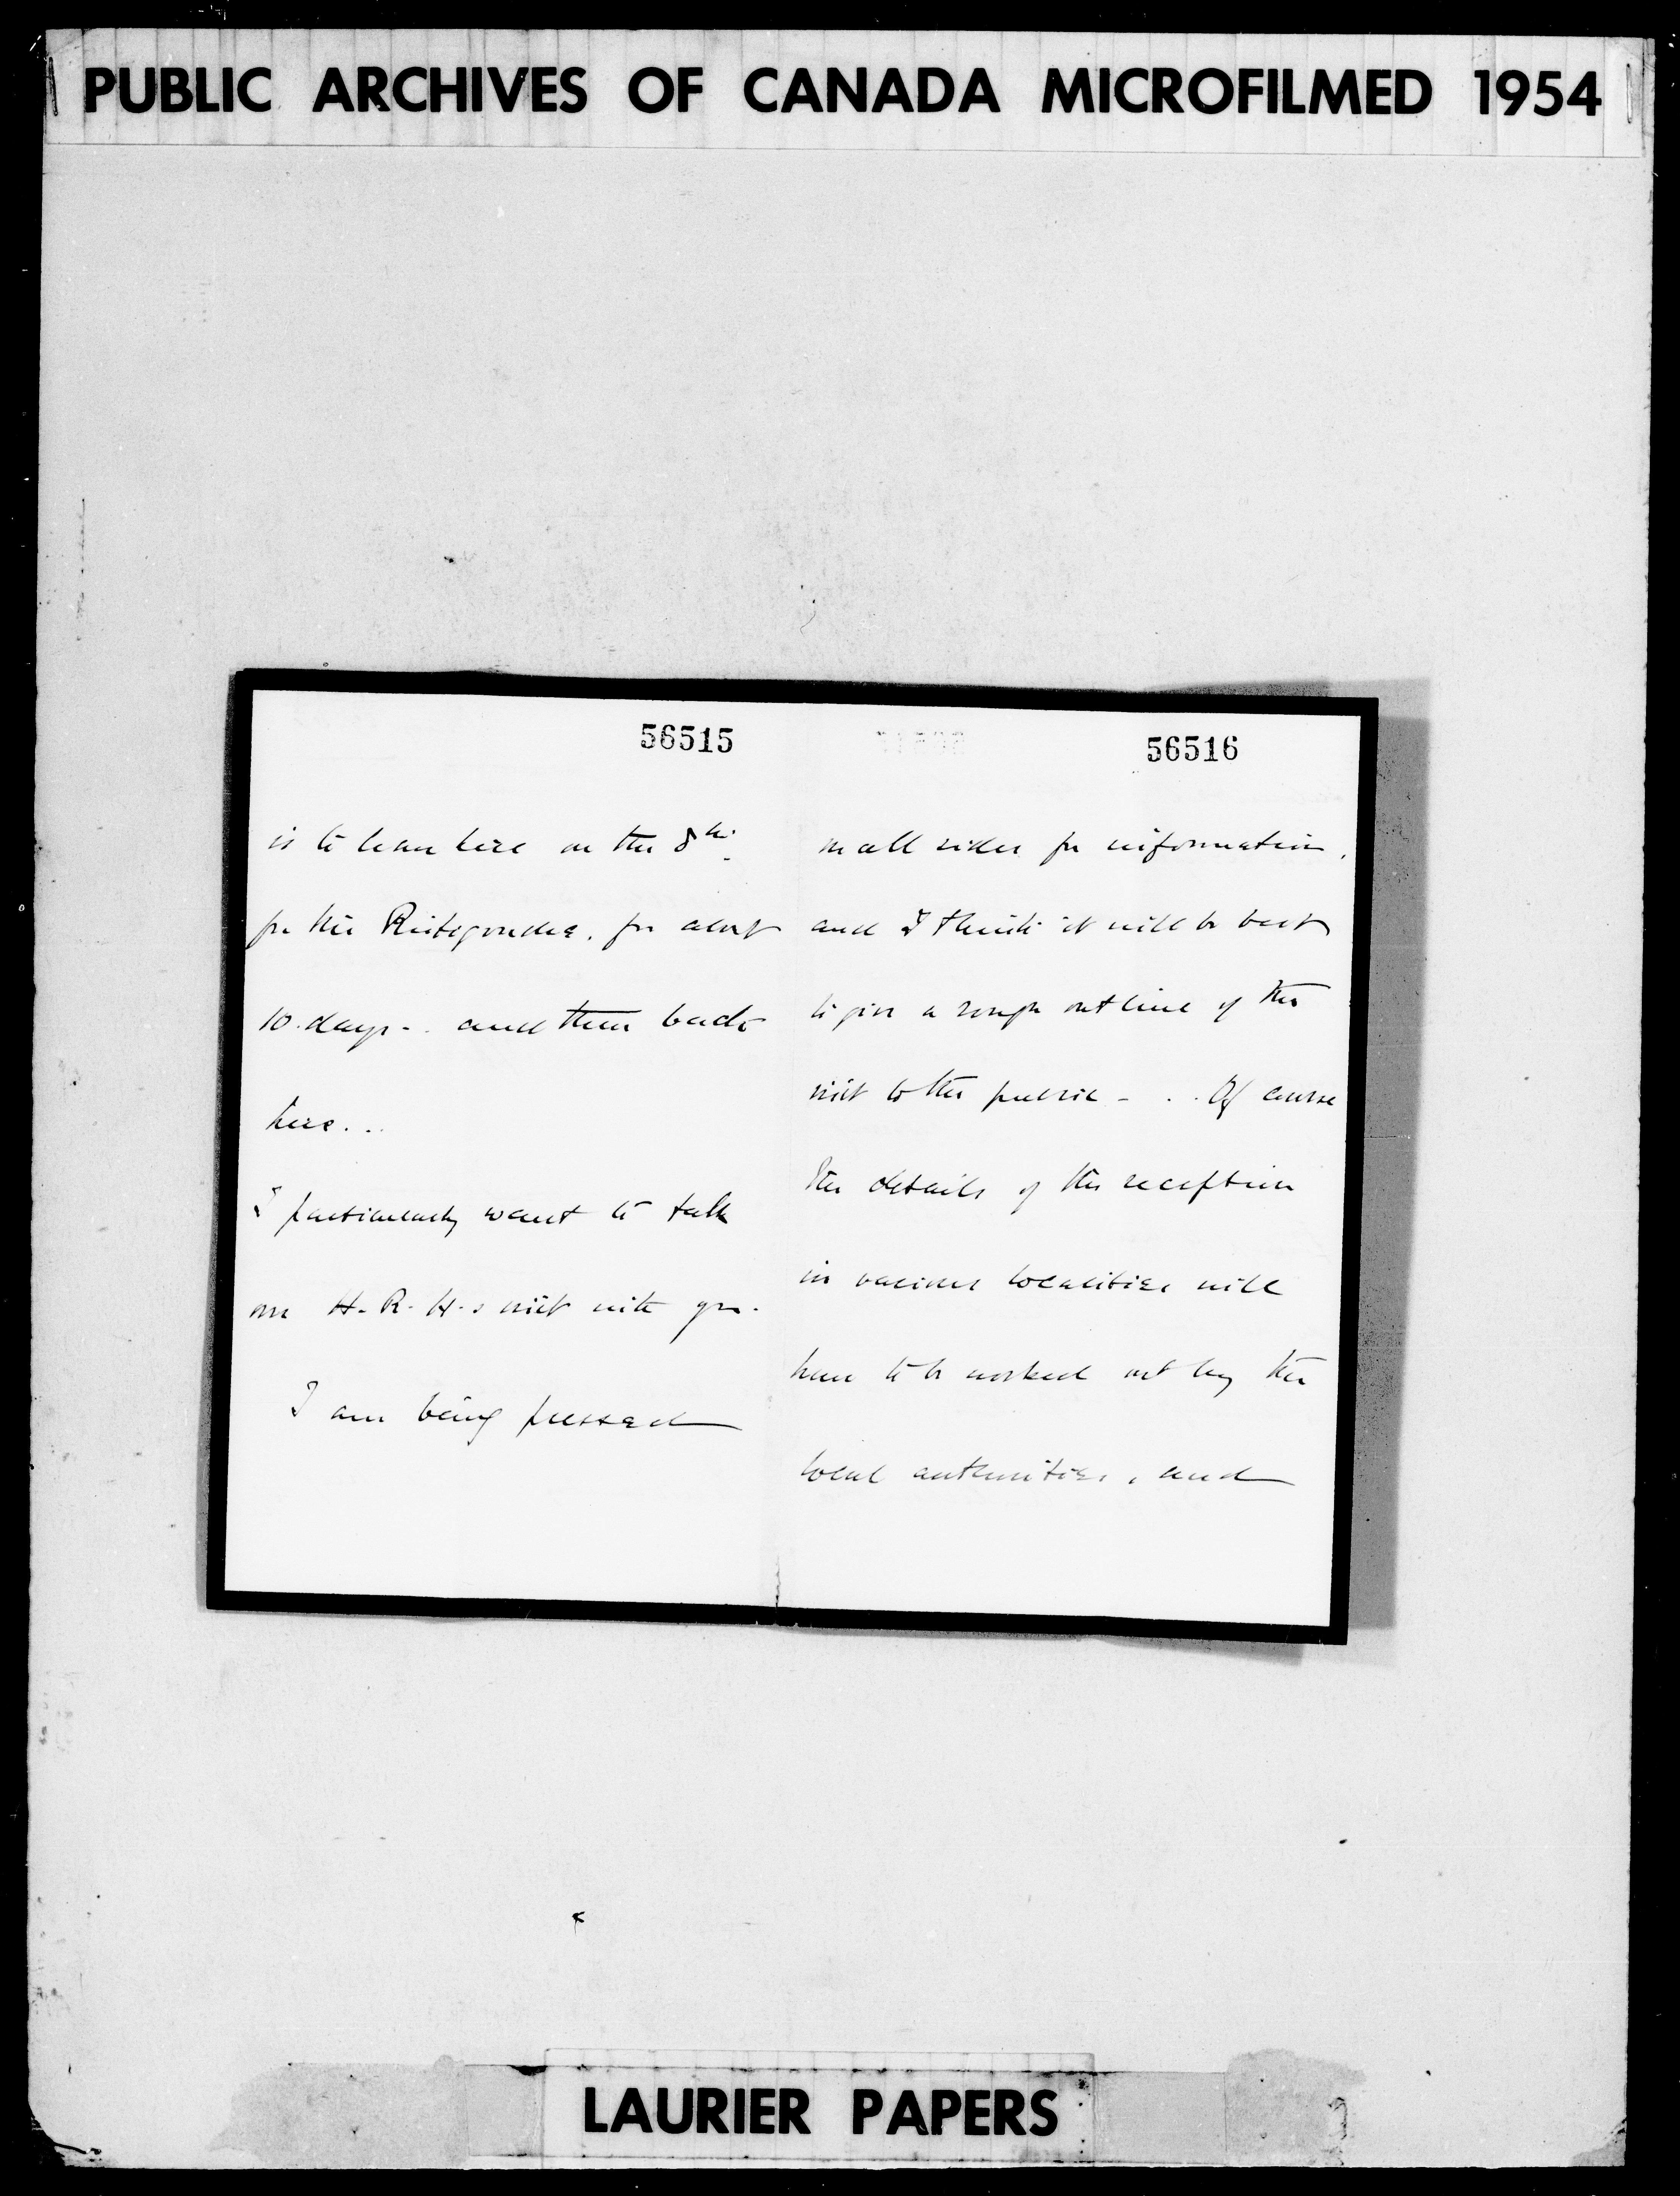 PUBLIC ARCHIVES OF CANADA MICROFILMED 1954
56515
is to leave here on the 8th.
for the Restigouche. for about
10. days - . and then back
here. . .
I particularly want to talk
over H. R. H.s visit with you.
I am being pressed
56516
on all sides for information,
and I think it will be best
to give a rough outline of the
visit to the public - . . Of course
the details of the reception
in various localities will
have to be worked out by the
local authorities, and
LAURIER PAPERS